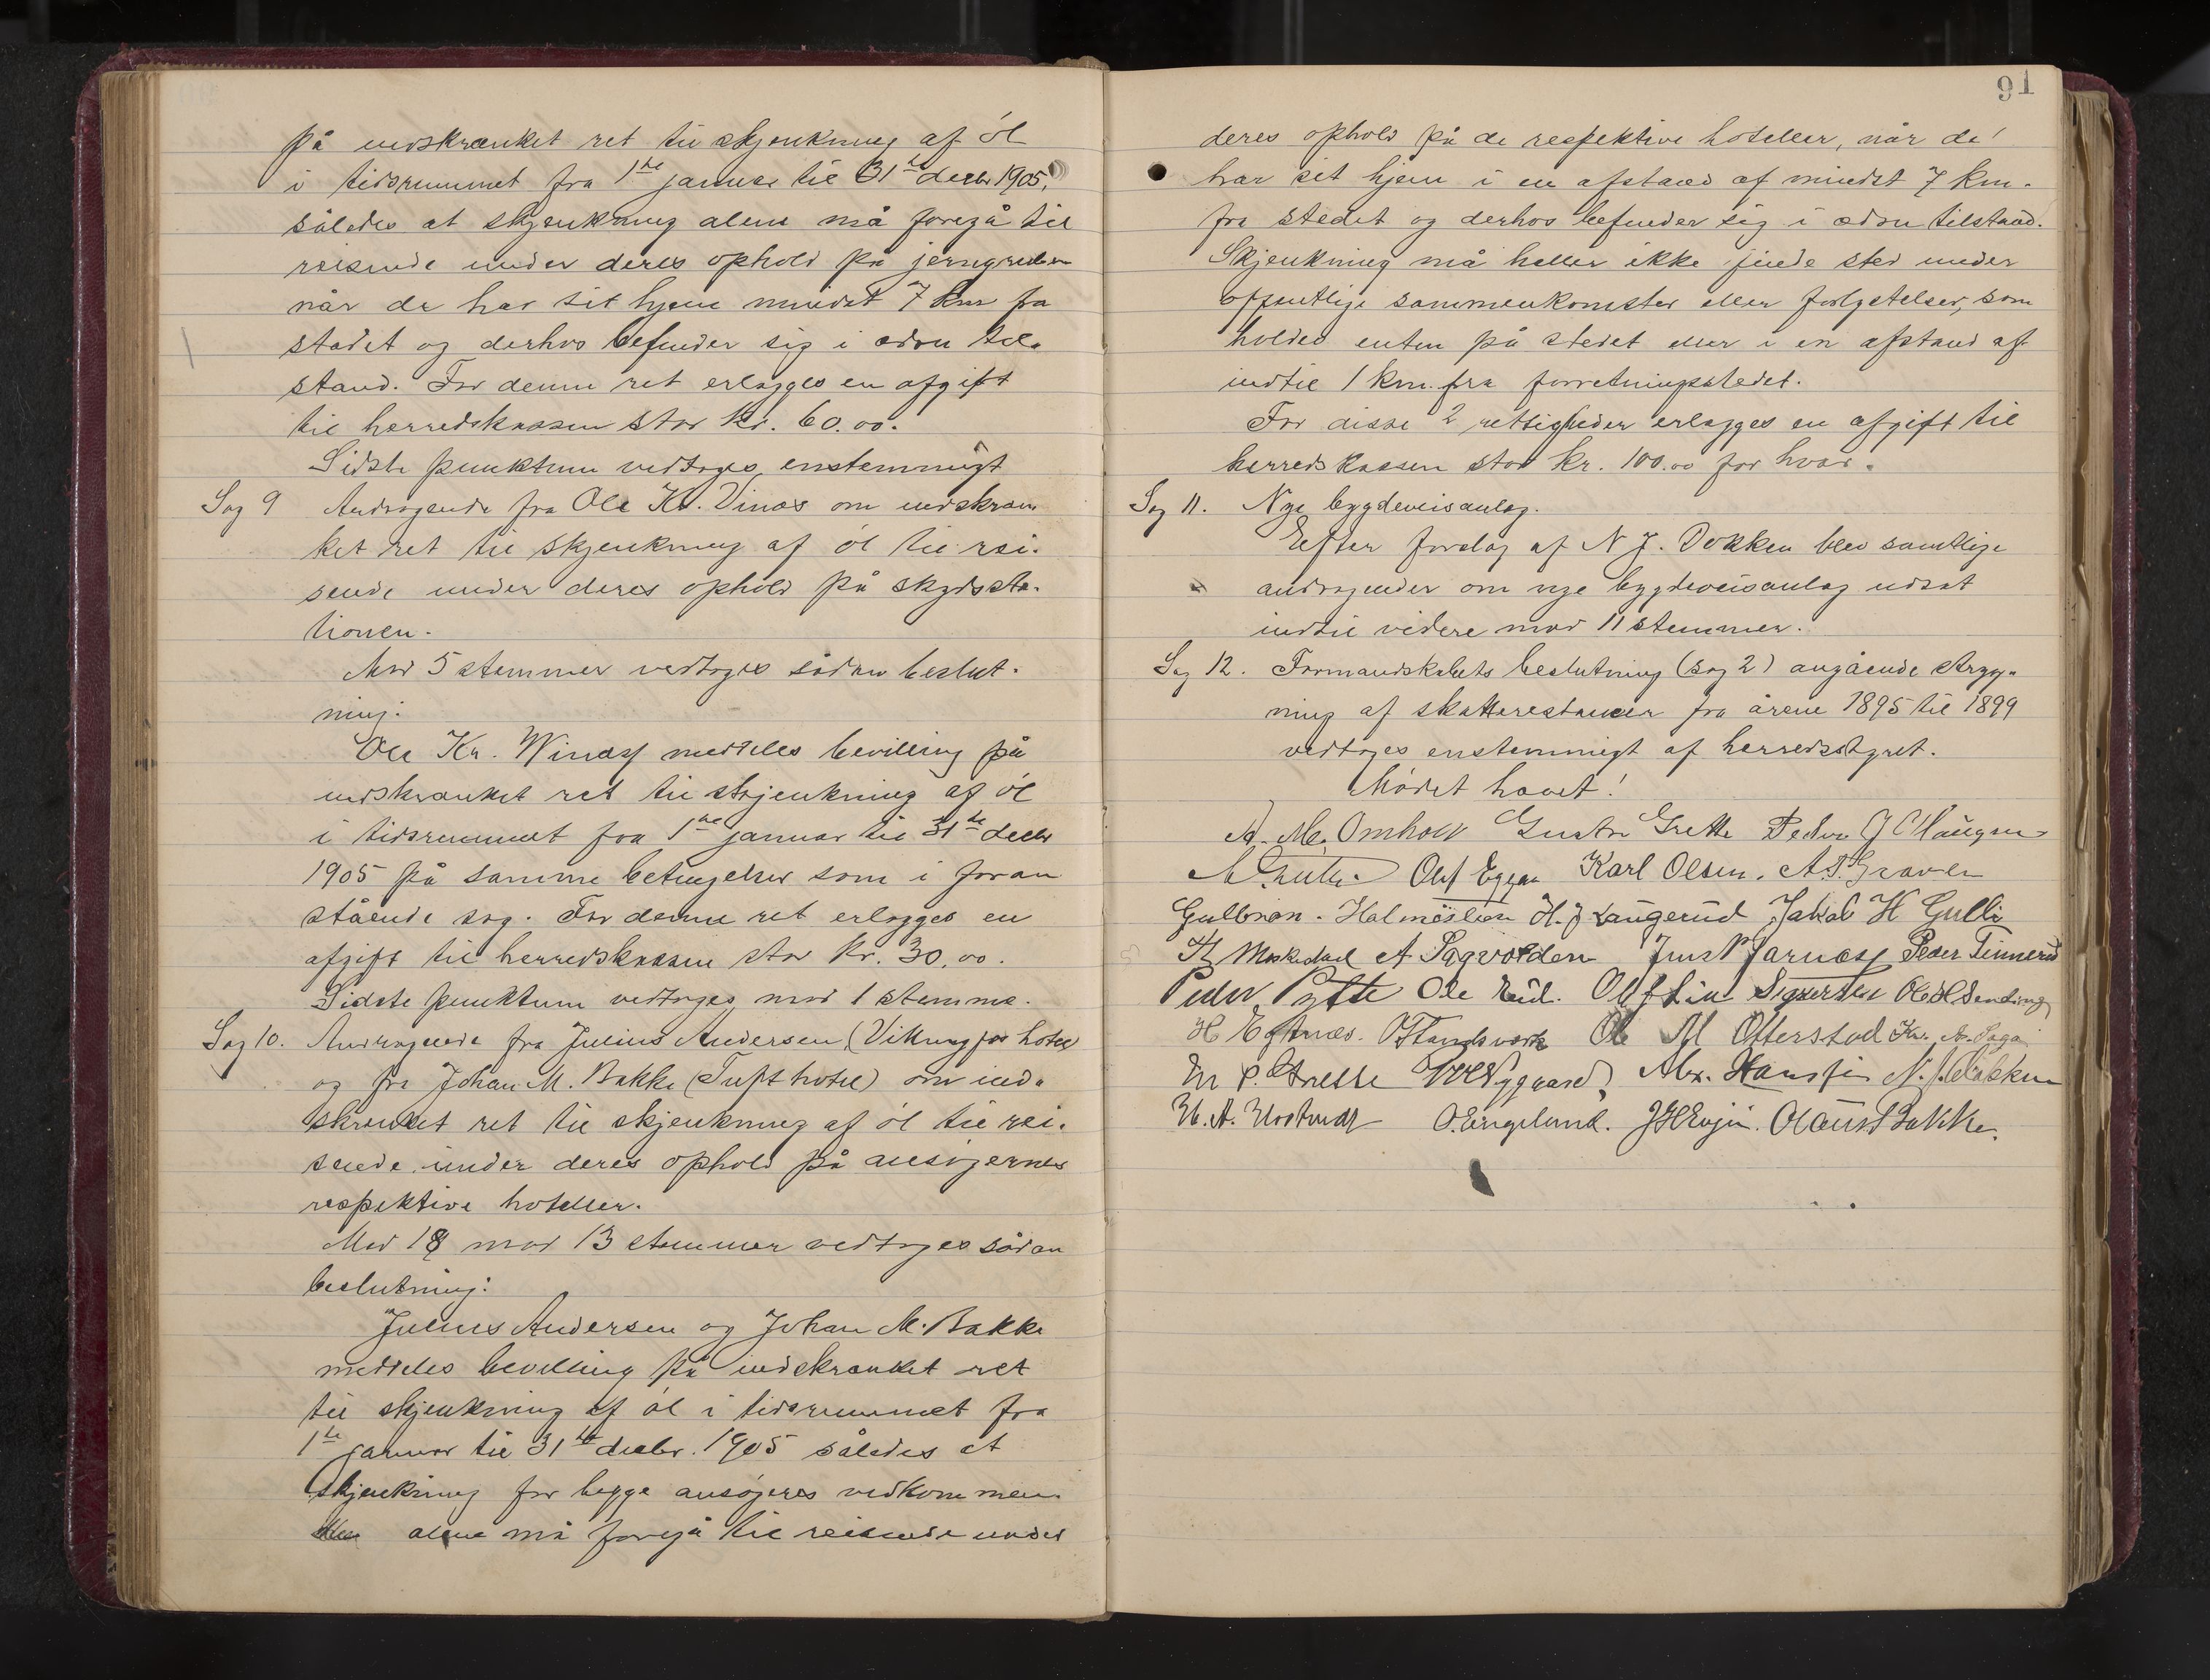 på indskrænket ret til skjenkning af øl
i tidsrummet fra 1te januar til 31te decbr 1905,
således at skjenkning alene må foregå til
reisende under deres ophold på
når de har sit hjem mindst 7 km fra
stedet og derhos befinder sig i ædru til-
stand. For denne ret erlægges en afgift
til herredskassen stor kr. 60.00.
Sidste punktum vedtoges enstemmigt
Sag 9 Andragende fra Ole Kr. Vinæs om indskræn
ket ret til skjenkning af øl til rei-
sende under deres ophold på skydssta-
tionen.
Mod 5 stemmer vedtoges sådan beslut-
ning:
Ole Kr. Winæs meddeles bevilling på
indskrænket ret til skjenkning af øl
i tidsrummet fra 1te januar til 31te decbr
1905 på samme betingelser som i foran
stående sag. For denne ret erlægges en
afgift til herredskassen stor kr. 30.00.
Sidste punktum vedtoges mod 1 stemme.
Sag 10. Andragende fra Julius Andersen (Vikingfos hotel)
og fra Johan M. Bakke (Tuft hotel) om ind-
skrænket ret til skjenkning af øl til rei-
sende under deres ophold på ansøgernes
respektive hoteller.
Med 18 mod 13 stemmer vedtoges sådan
beslutning:
Julius Andersen og Johan M. Bakke
meddeles bevilling på indskrænket ret
til skjenkning af øl i tidsrummet fra
1te januar til 31te decbr. 1905 således at
skjenkning for begge ansøgeres vedkommen-
alene må foregå til reisende under
91
deres ophold på de respektive hoteller, når de
har sit hjem i en afstand af mindst 7 km.
fra stedet og derhos befinder sig i ædru tilstand.
Skjenkning må heller ikke finde sted under
offentlige sammenkomster eller forlystelser, som
holdes enten på stedet eller i en afstand af
indtil 1 km. fra forretningsstedet.
For disse 2 rettigheder erlægges en afgift til
herredskassen stor kr. 100.00 for hver.
Sag 11. Nye bygdeveisanlæg.
Efter forslag af N J. Dokken blev samtlige
andragender om nye bygdeveisanlæg udsat
indtil videre mod 11 stemmer.
Sag 12. Formandskabets beslutning (sag 2) angående stryg-
ning af skatterestancer fra årene 1895 til 1899
vedtoges enstemmigt af herredsstyret.
Mødet hævet!
A. M. Omholt Gustav Grette Peder J Haugen
Olaf Eggen Karl Olsen. A. P. Graven
Gulbran. Halmøslien H. J Laugerud Jakob H Gulli
A Sagvolden Just Jarnæss Peder Tinnerud
Peder Pytte Ole Rud. Sigvertsen Ole H Sending
H Eknæs. Ole M Ofterstad Kr. A. Saga
En P. Grette Nygaard, Alex. Hansen N. J. Dokken
O. Engelund. J H Evju. Olaus Bakke.